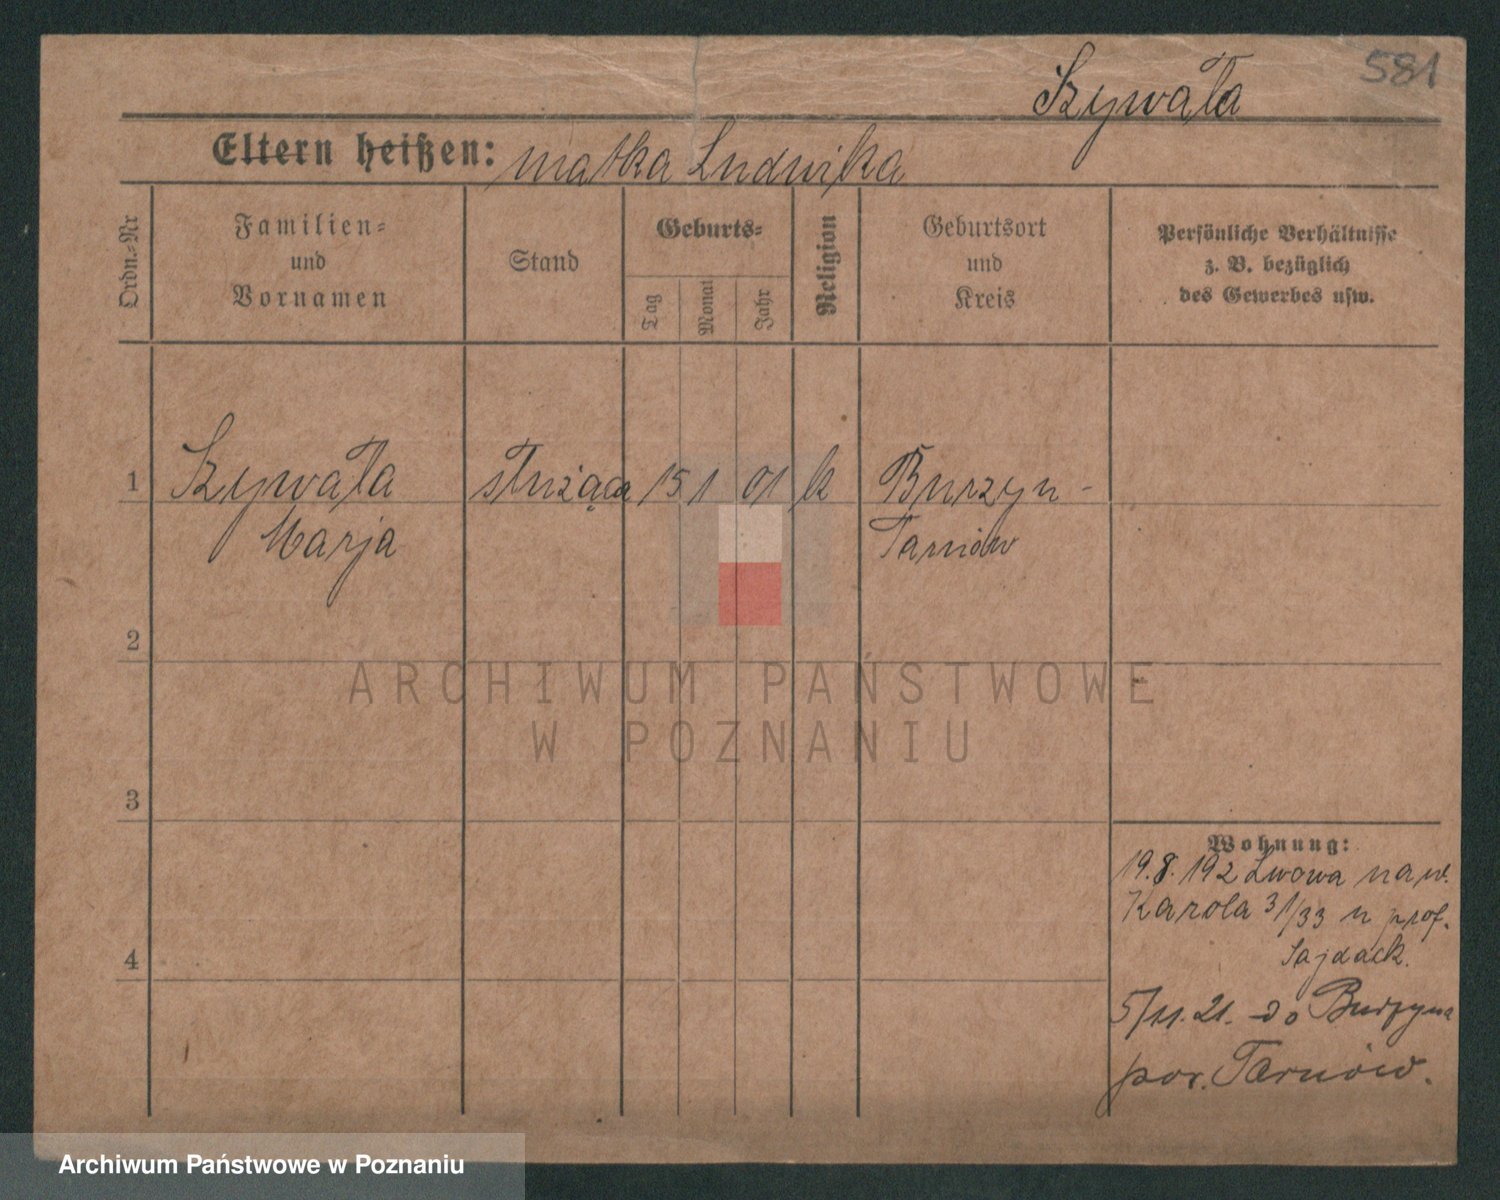 581
Szywała
Eltern heißen: matka Ludwika
Ordn.-Nr
Familien-
und
Vornamen
Stand
Geburts-
Tag
Monat
Jahr
Religion
Geburtsort
und
Kreis
Persönliche Verhältnisse
z. B. bezüglich
des Gewerbes usw.
1 Szywała służąca 15 1 01 k Burzyn -
Marja Tarnów
2
3
4
Wohnung:
19.8.192 Lwowa na w.
Karola 31/33 u prof.
Sajdack.
5/11.21. do Burzyna
pow. Tarnów.
ARCHIWUM PAŃSTWOWE
W POZNANIU
Archiwum Państwowe w Poznaniu